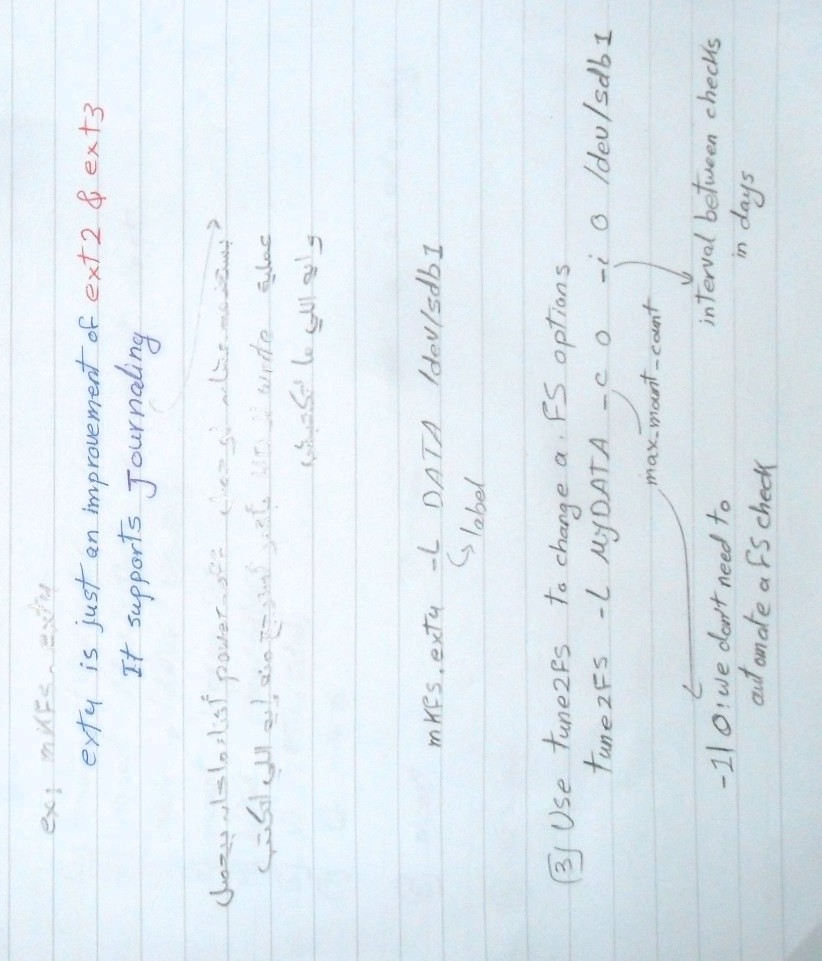 ex: mkfs.ext4
ext4 is just an improvement of ext2 & ext3
It supports Journaling
بستخدمه عشان لو حصل power-off أثناء ما كان بيحصل
عملية write بأقدر أسترجع منه إيه اللي اتكتب
و ايه اللي ما اتكتبش
mkfs.ext4 -L DATA /dev/sdb1
label
3) Use tune2fs to change a FS options
tune2FS -L MYDATA -c 0 -i 0 /dev/sdb1
max-mount-count
-1|0: we don't need to
automate a FS check
interval between checks
in days